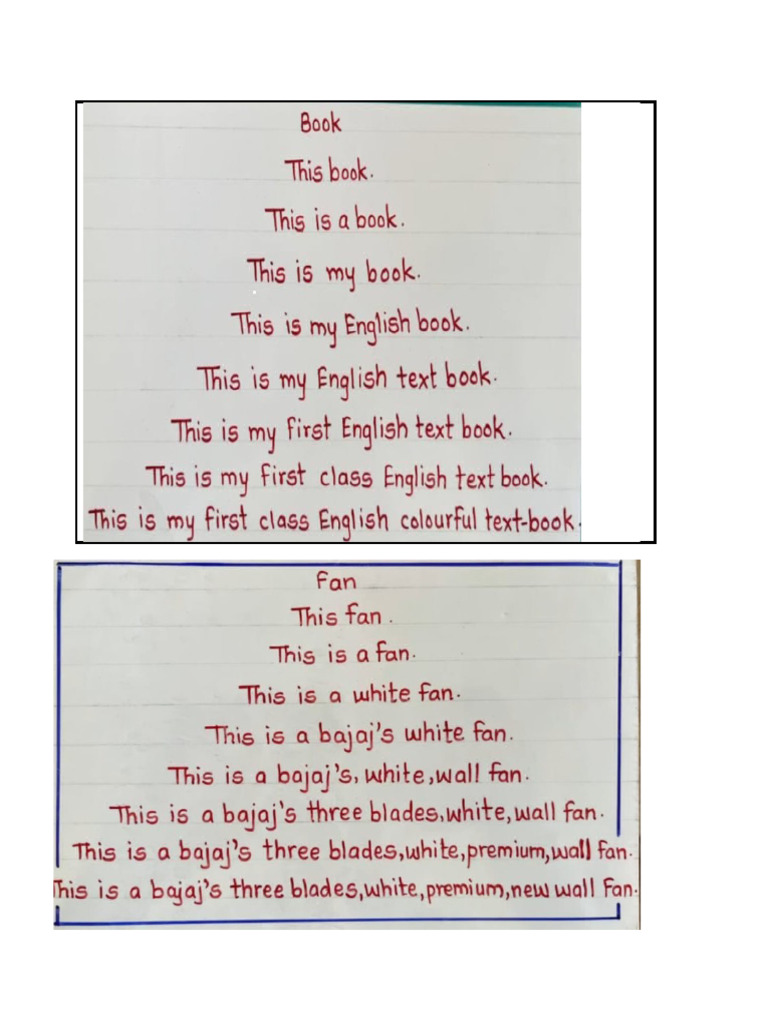 Book
This book.
This is a book.
This is my book.
This is my English book.
This is my English text book.
This is my first English text book.
This is my first class English text book.
This is my first class English colourful text-book.
Fan
This fan.
This is a fan.
This is a white fan.
This is a bajaj's white fan.
This is a bajaj's, white,wall fan.
This is a bajaj's three blades,white,wall fan.
This is a bajaj's three blades,white,premium,wall fan.
This is a bajaj's three blades,white,premium,new wall fan.